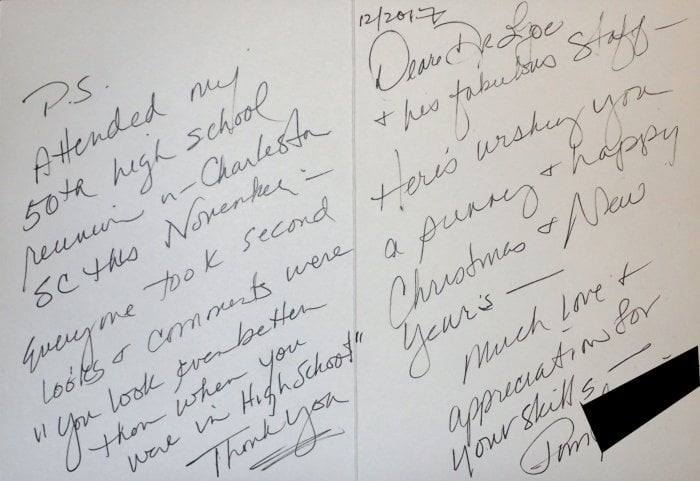 12/2017
Dear Dr Lyle
& his fabulous staff —
Here's wishing you
a sunny & happy
Christmas & New
Year's —
Much love &
appreciation for
your skills, —
P.S.
Attended my
50th high school
reunion in Charleston
SC this November —
Everyone took second
looks & comments were
"You look even better
than when you
were in High School"
Thank You